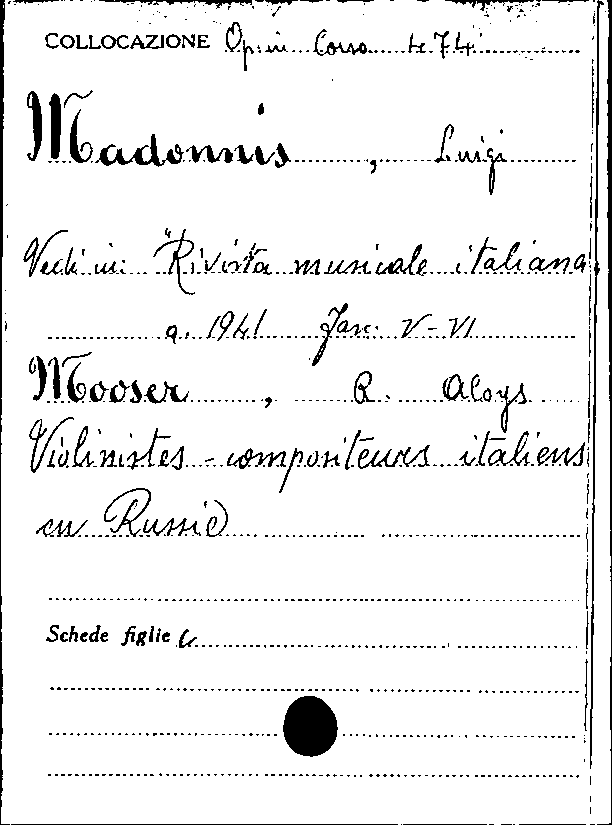 COLLOCAZIONE Op. in Corso 474
Madonnis, Luigi
Vedi in: "Rivista musicale italiana"
a. 1941 Fasc. V-VI
Mooser, R. Aloys
Violinistes-compositeurs italiens
en Russie
Schede figlie